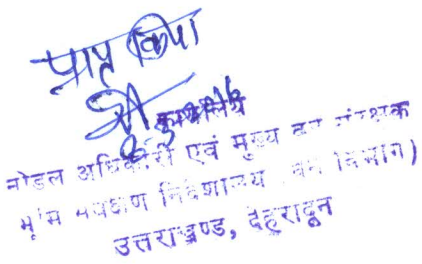 प्राप्त किया
कार्यालय
नोडल अधिकारी एवं मुख्य वन संरक्षक
भूमि सर्वेक्षण निदेशालय वन विभाग)
उत्तराखण्ड, देहरादून